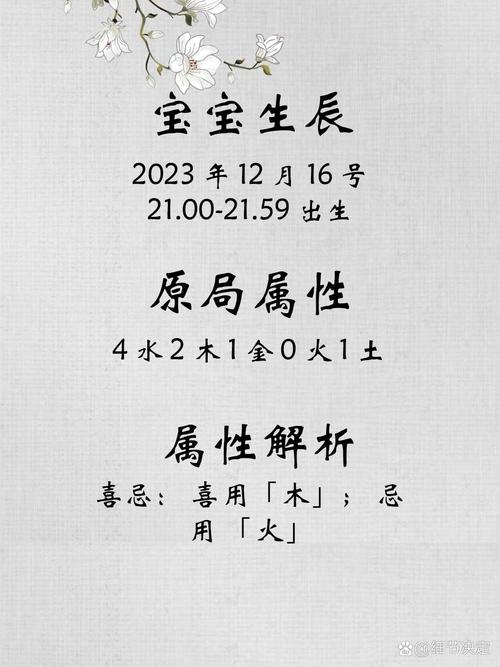 宝宝生辰
2023 年 12 月 16 号
21.00-21.59 出生
原局属性
4 水 2 木 1 金 0 火 1 土
属性解析
喜忌: 喜用「木」; 忌
用「火」
@细节决定